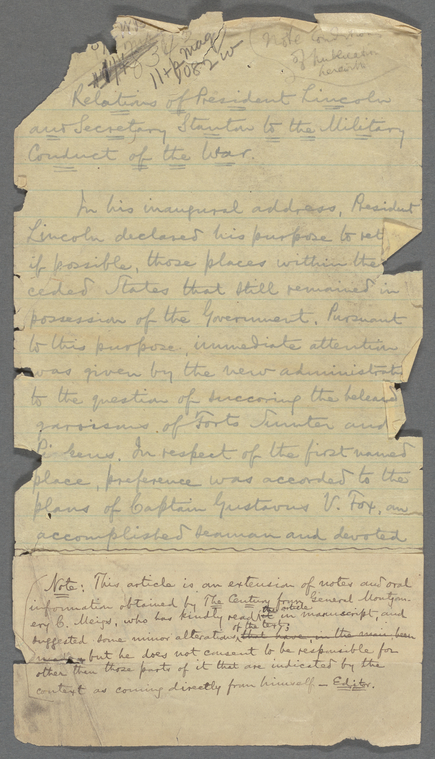 11+p mag
082w
Note
of
herewith
Relations of President Lincoln
and Secretary Stanton to the Military
Conduct of the War.
In his inaugural address, President
Lincoln declared his purpose to ret
if possible, those places within the
ceded States that still remained in
possession of the Government. Pursuant
to this purpose, immediate attention
was given by the new administrat
to the question of succoring the beleag
garrisons of Forts Sumter and
Pi kens. In respect of the first named
place, preference was accorded to the
plans of Captain Gustavus V. Fox, an
accomplished seaman and devoted
Note: This article is an extension of notes and oral
information obtained by The Century from General Montgom-
ery C. Meigs, who has kindly read the article in manuscript, and
suggested some minor alterations of the text; that have, in the main been
made, but he does not consent to be responsible for
other than those parts of it that are indicated by the
context as coming directly from himself — Editor.